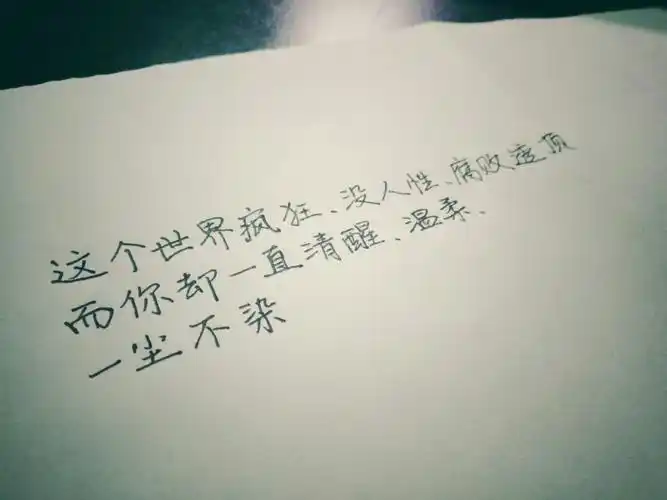 这个世界疯狂、没人性、腐败透顶
而你却一直清醒、温柔、
一尘不染